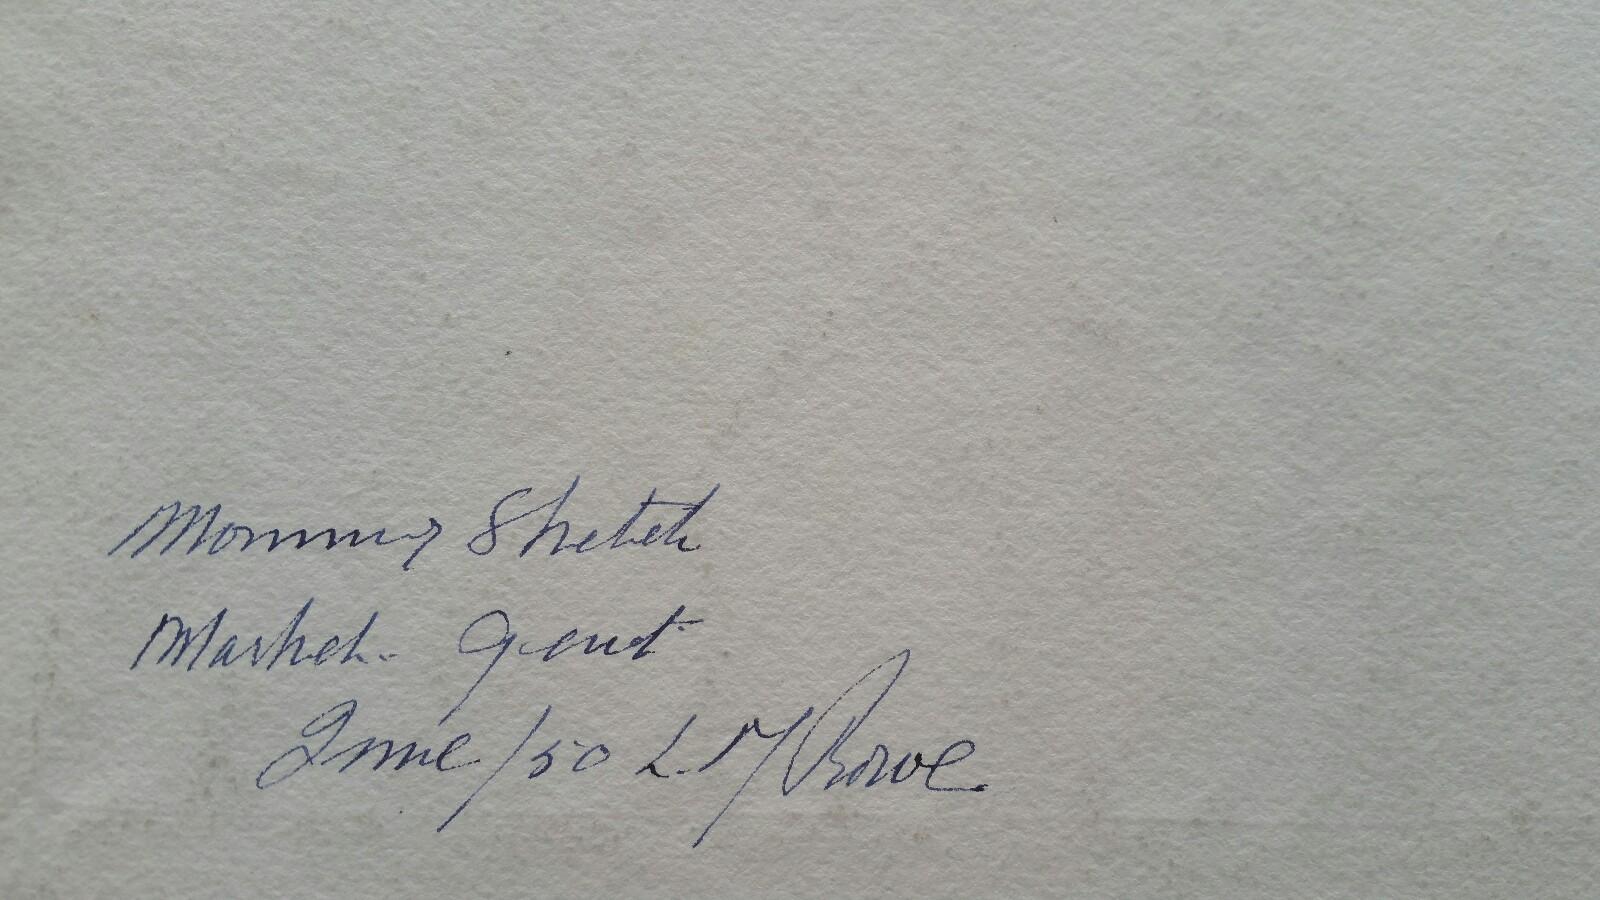 Morning Sketch
Market. Gent
June/50 L. M Rowe